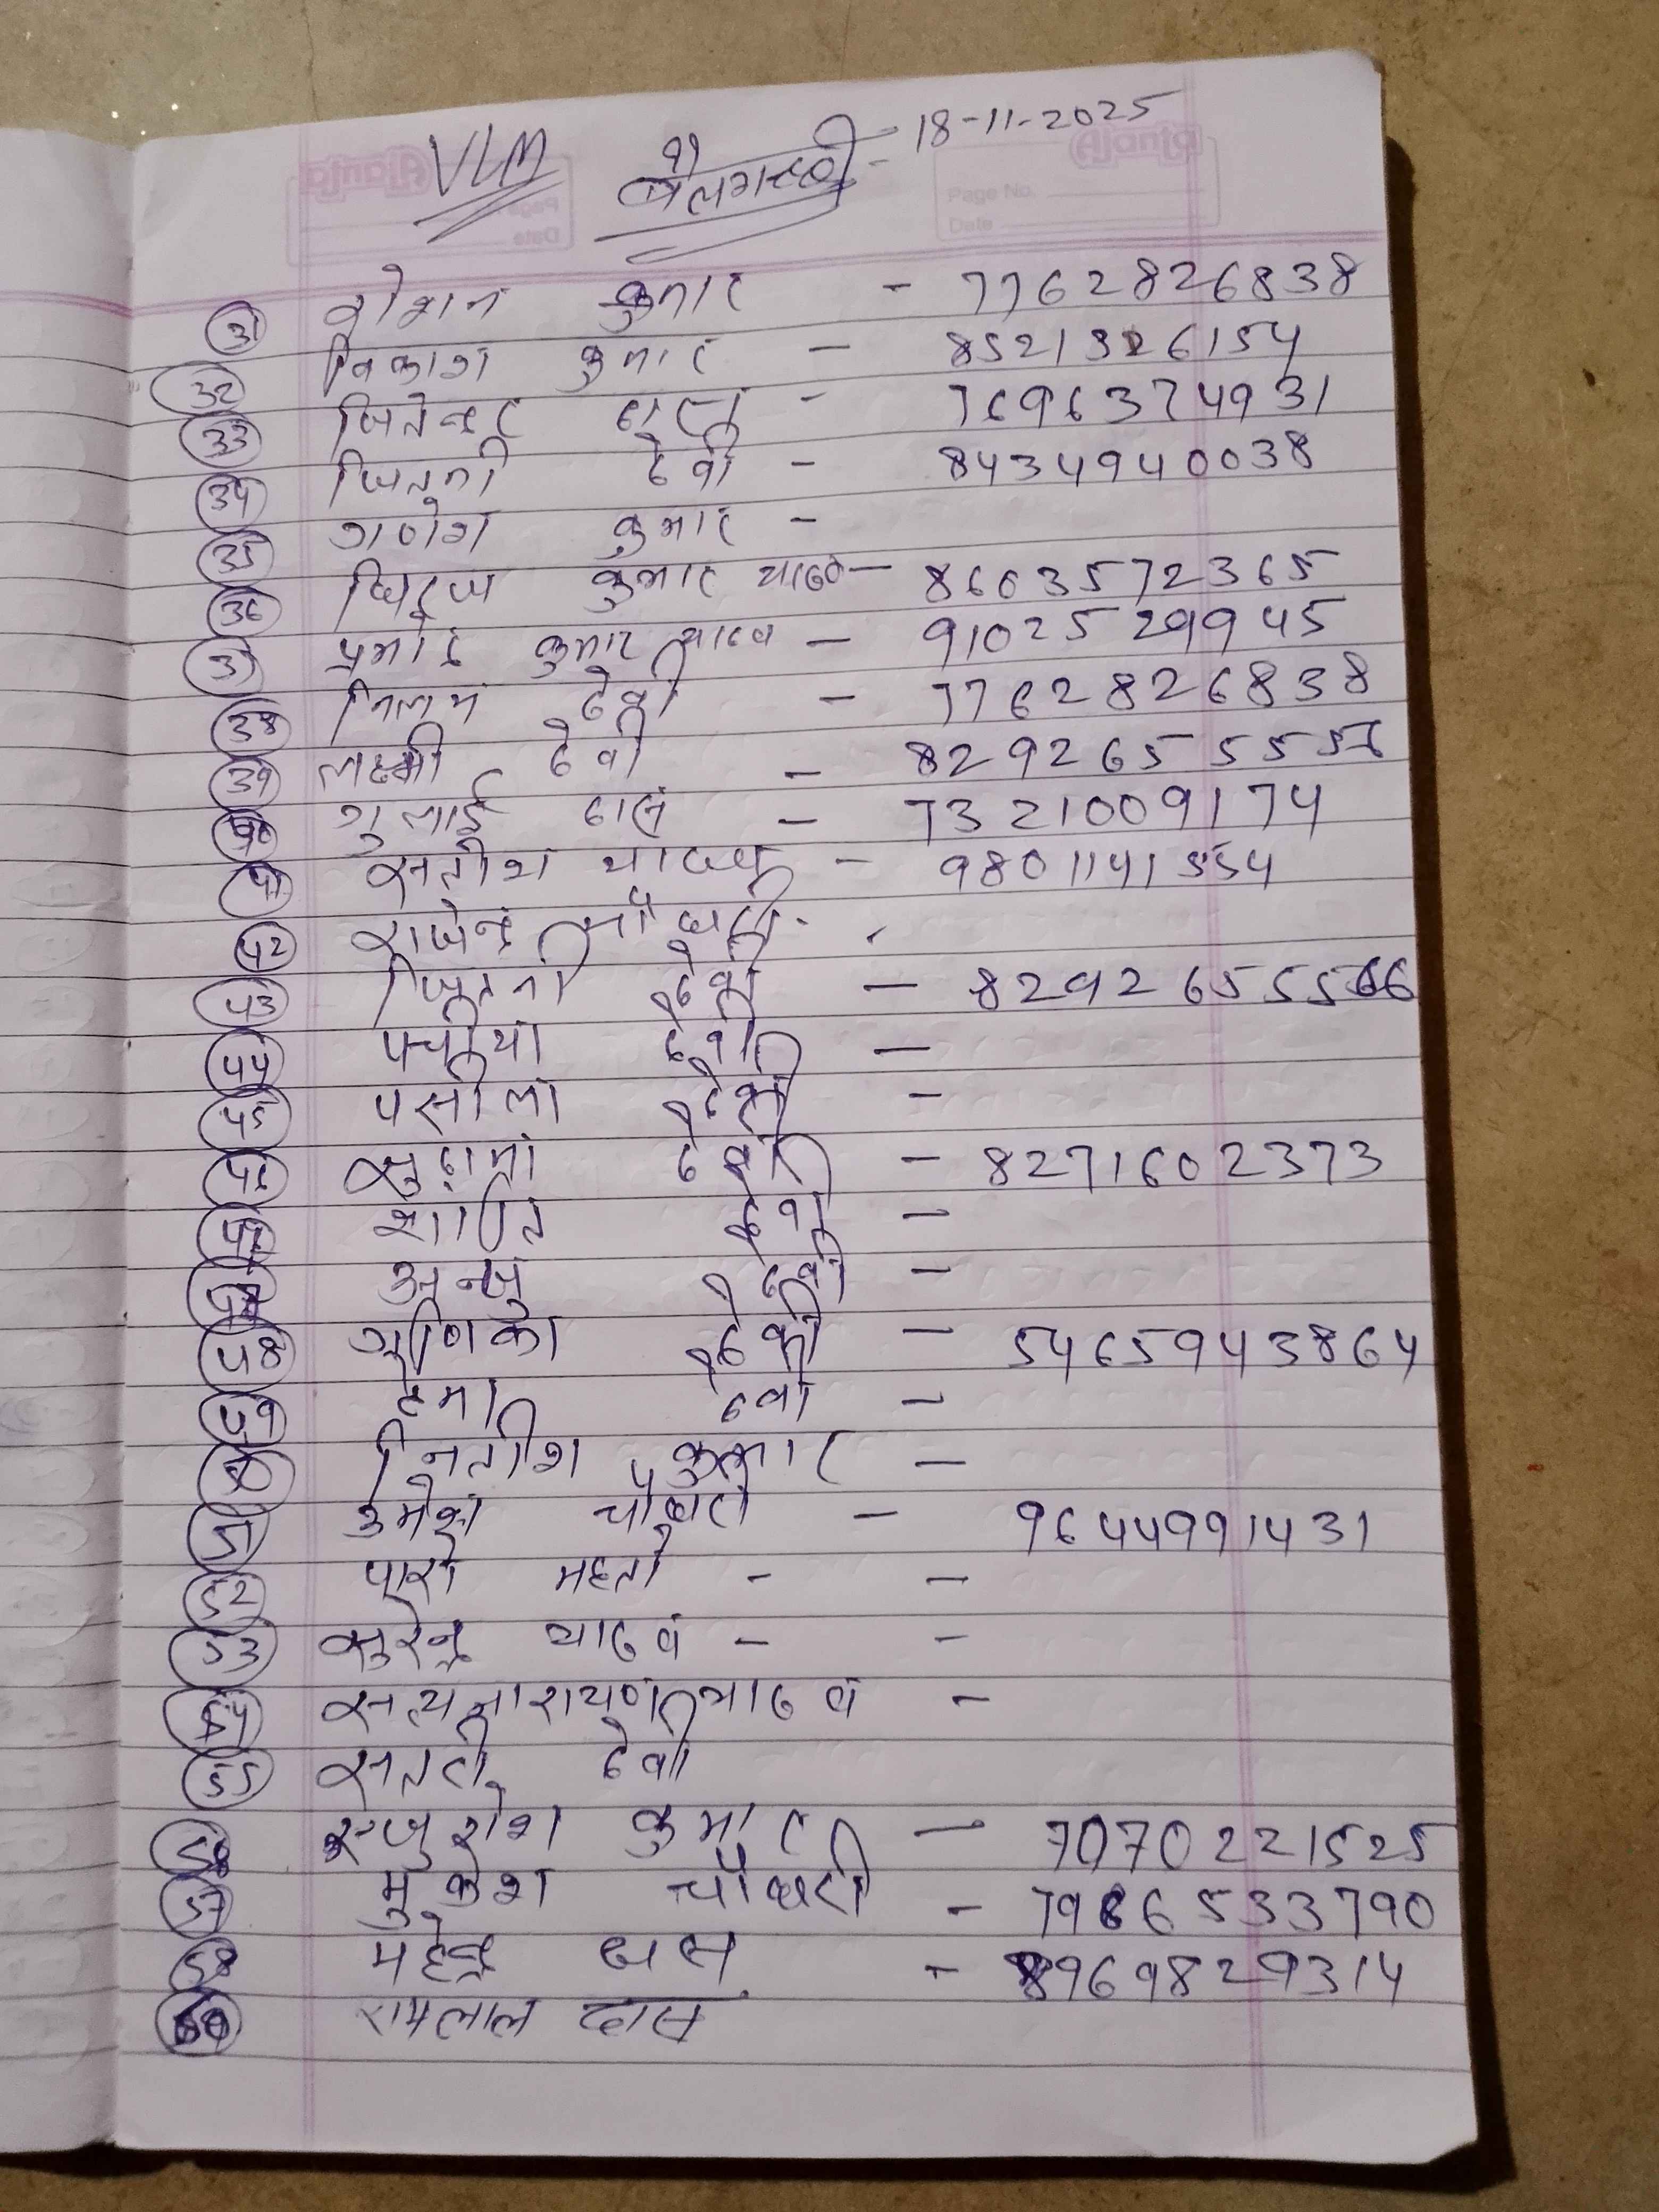 VLM बेलगच्छी - 18-11-2025
Ajanta
Page No.
Date
31 रोशन कुमार - 7762826838
32 विकाश कुमार - 8521326154
33 जितेन्द्र दास - 7696374931
34 जितनी देवी - 8434940038
35 गणेश कुमार -
36 धिरज कुमार यादव - 8603572365
37 प्रमोद कुमार यादव - 9102529945
38 निलम देवी - 7762826838
39 लक्ष्मी देवी - 829265555
40 गुलाई दास - 7321009174
41 सतीश यादव - 9801141554
42 राजेन्द्र चौधरी -
43 जितनी देवी - 8292655566
44 देवी -
45 पसीला देवी -
46 सुदामा देवी - 8271602373
47 शान्ति देवी -
अन्जु देवी -
48 देवी - 5465943864
49 हेमा देवी -
नितीश कुमार -
51 उमेश चौधरी - 9644991431
52 पारो महतो - -
53 सुरेन्द्र यादव - -
54 सत्यनारायण यादव -
55 देवी
56 कुमार - 7070221525
57 मुकेश चौधरी - 7986533790
58 महेन्द्र दास - 8969829314
60 रामलाल दास